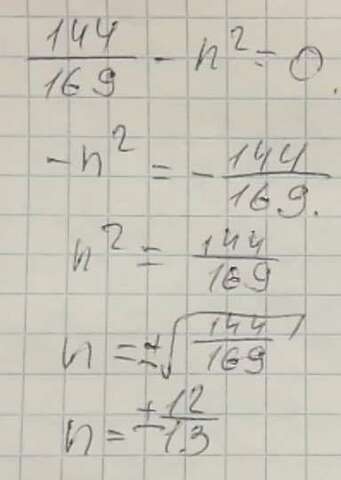 144/169 - n² = 0.
-n² = - 144/169.
n² = 144/169
n = ±√(144/169)
n = ± 12/13